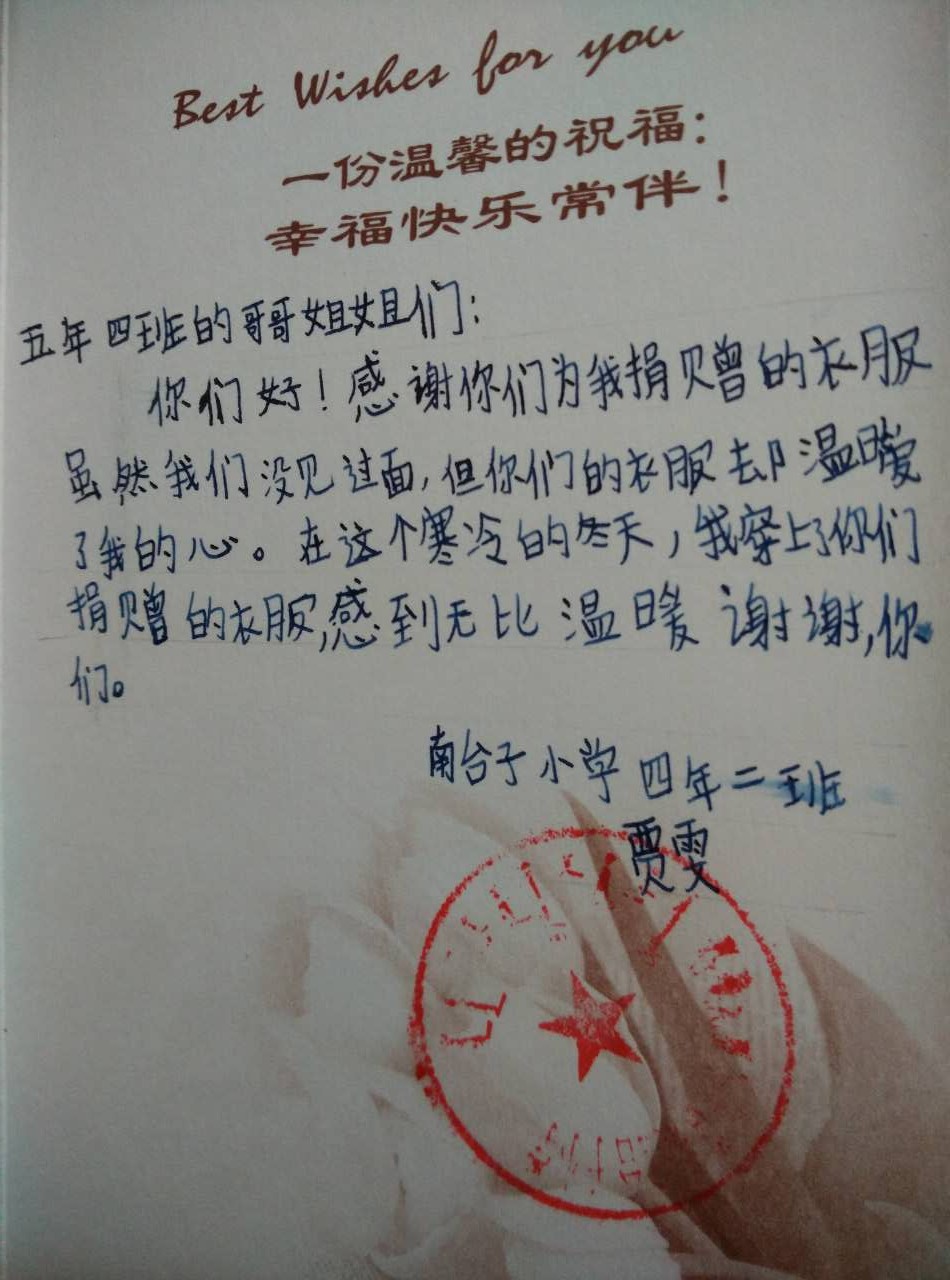 Best Wishes for you
一份温馨的祝福:
幸福快乐常伴!
五年四班的哥哥姐姐们:
你们好!感谢你们为我捐赠的衣服
虽然我们没见过面,但你们的衣服却温暖
了我的心。在这个寒冷的冬天,我穿上了你们
捐赠的衣服,感到无比温暖 谢谢,你
们。
南台子小学四年二班
贾雯